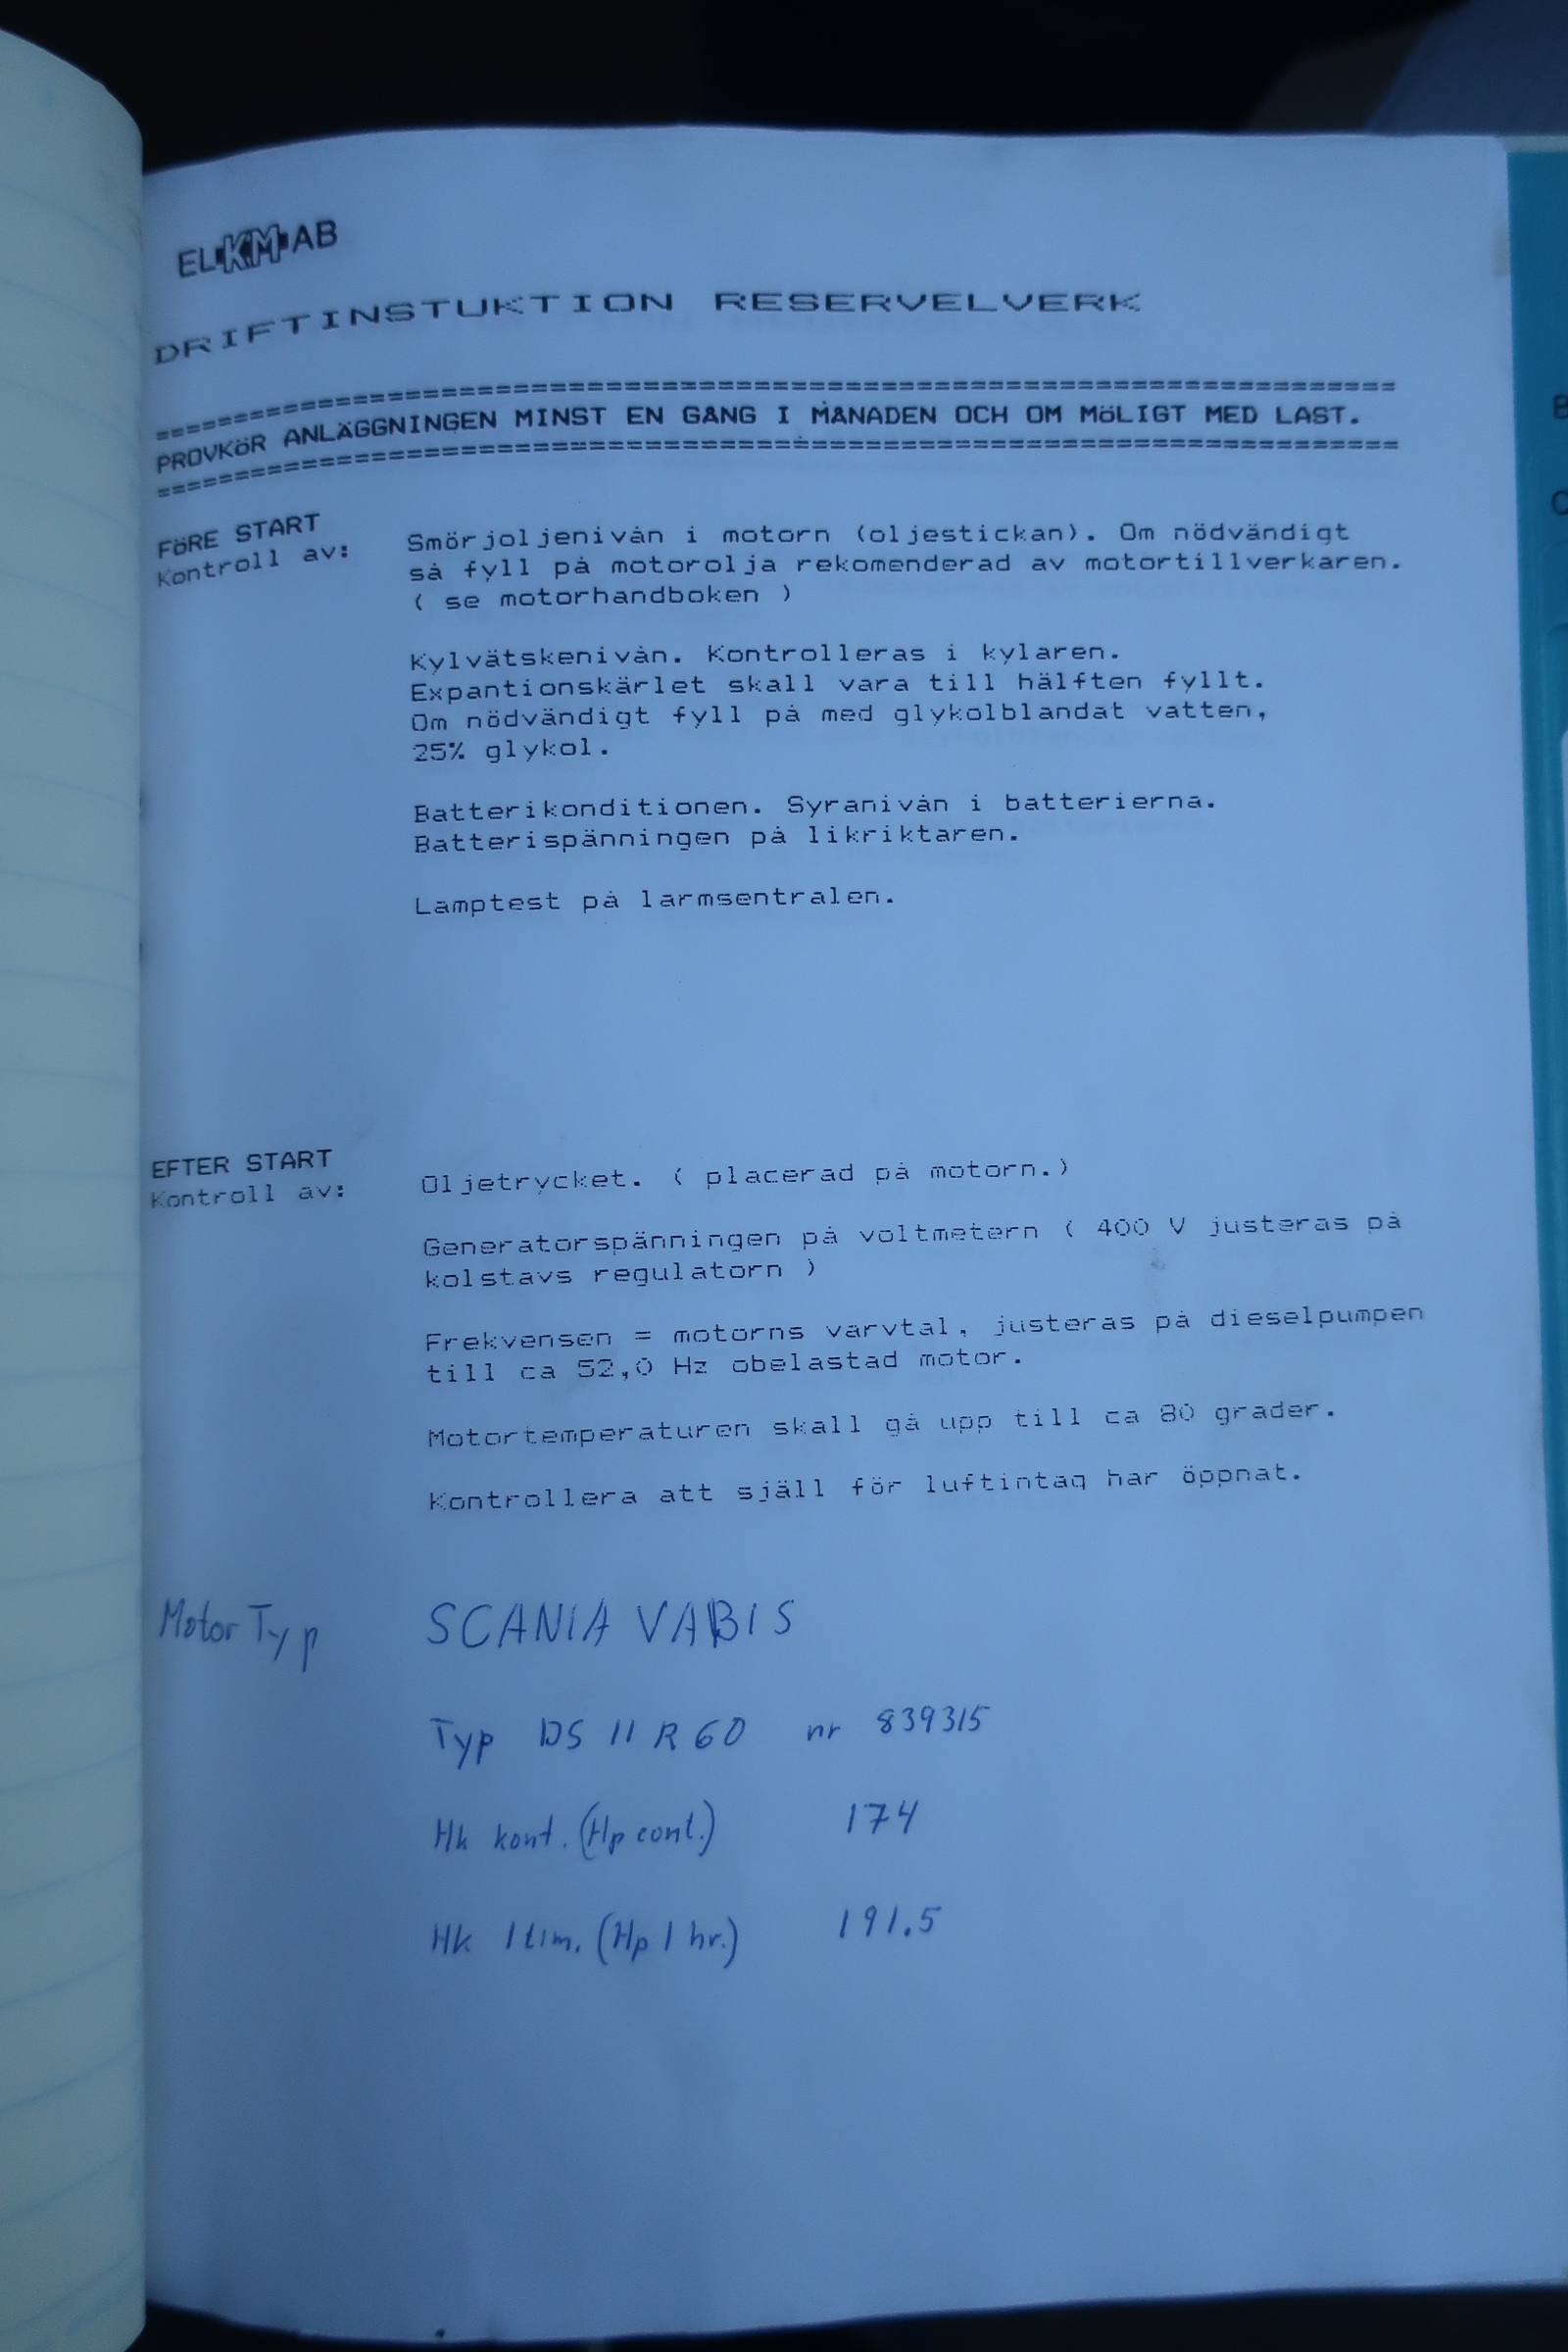 EL KM AB
DRIFTINSTUKTION RESERVELVERK
================================================================
PROVKöR ANLÄGGNINGEN MINST EN GÅNG I MÅNADEN OCH OM MöLIGT MED LAST.
================================================================
FöRE START
Kontroll av:
Smörjoljenivån i motorn (oljestickan). Om nödvändigt
så fyll på motorolja rekomenderad av motortillverkaren.
( se motorhandboken )
Kylvätskenivån. Kontrolleras i kylaren.
Expantionskärlet skall vara till hälften fyllt.
Om nödvändigt fyll på med glykolblandat vatten,
25% glykol.
Batterikonditionen. Syranivån i batterierna.
Batterispänningen på likriktaren.
Lamptest på larmsentralen.
EFTER START
Kontroll av:
Oljetrycket. ( placerad på motorn.)
Generatorspänningen på voltmetern ( 400 V justeras på
kolstavs regulatorn )
Frekvensen = motorns varvtal, justeras på dieselpumpen
till ca 52,0 Hz obelastad motor.
Motortemperaturen skall gå upp till ca 80 grader.
Kontrollera att själl för luftintag har öppnat.
Motor Typ SCANIA VABIS
Typ DS 11 R 60 nr 839315
Hk kont. (Hp cont.) 174
Hk 1 tim. (Hp 1 hr.) 191.5